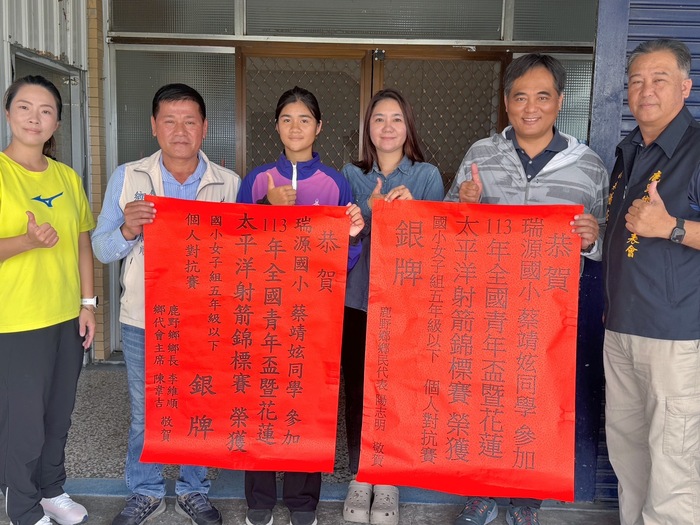 恭賀
瑞源國小 蔡靖妶同學 參加
113年全國青年盃暨花蓮
太平洋射箭錦標賽 榮獲
國小女子組五年級以下
個人對抗賽
銀牌
鹿野鄉鄉長 李維順
鄉代會主席 陳韋吉 敬賀
恭賀
瑞源國小 蔡靖妶同學 參加
113年全國青年盃暨花蓮
太平洋射箭錦標賽 榮獲
國小女子組五年級以下 個人對抗賽
銀牌
鹿野鄉鄉民代表 陽志明 敬賀